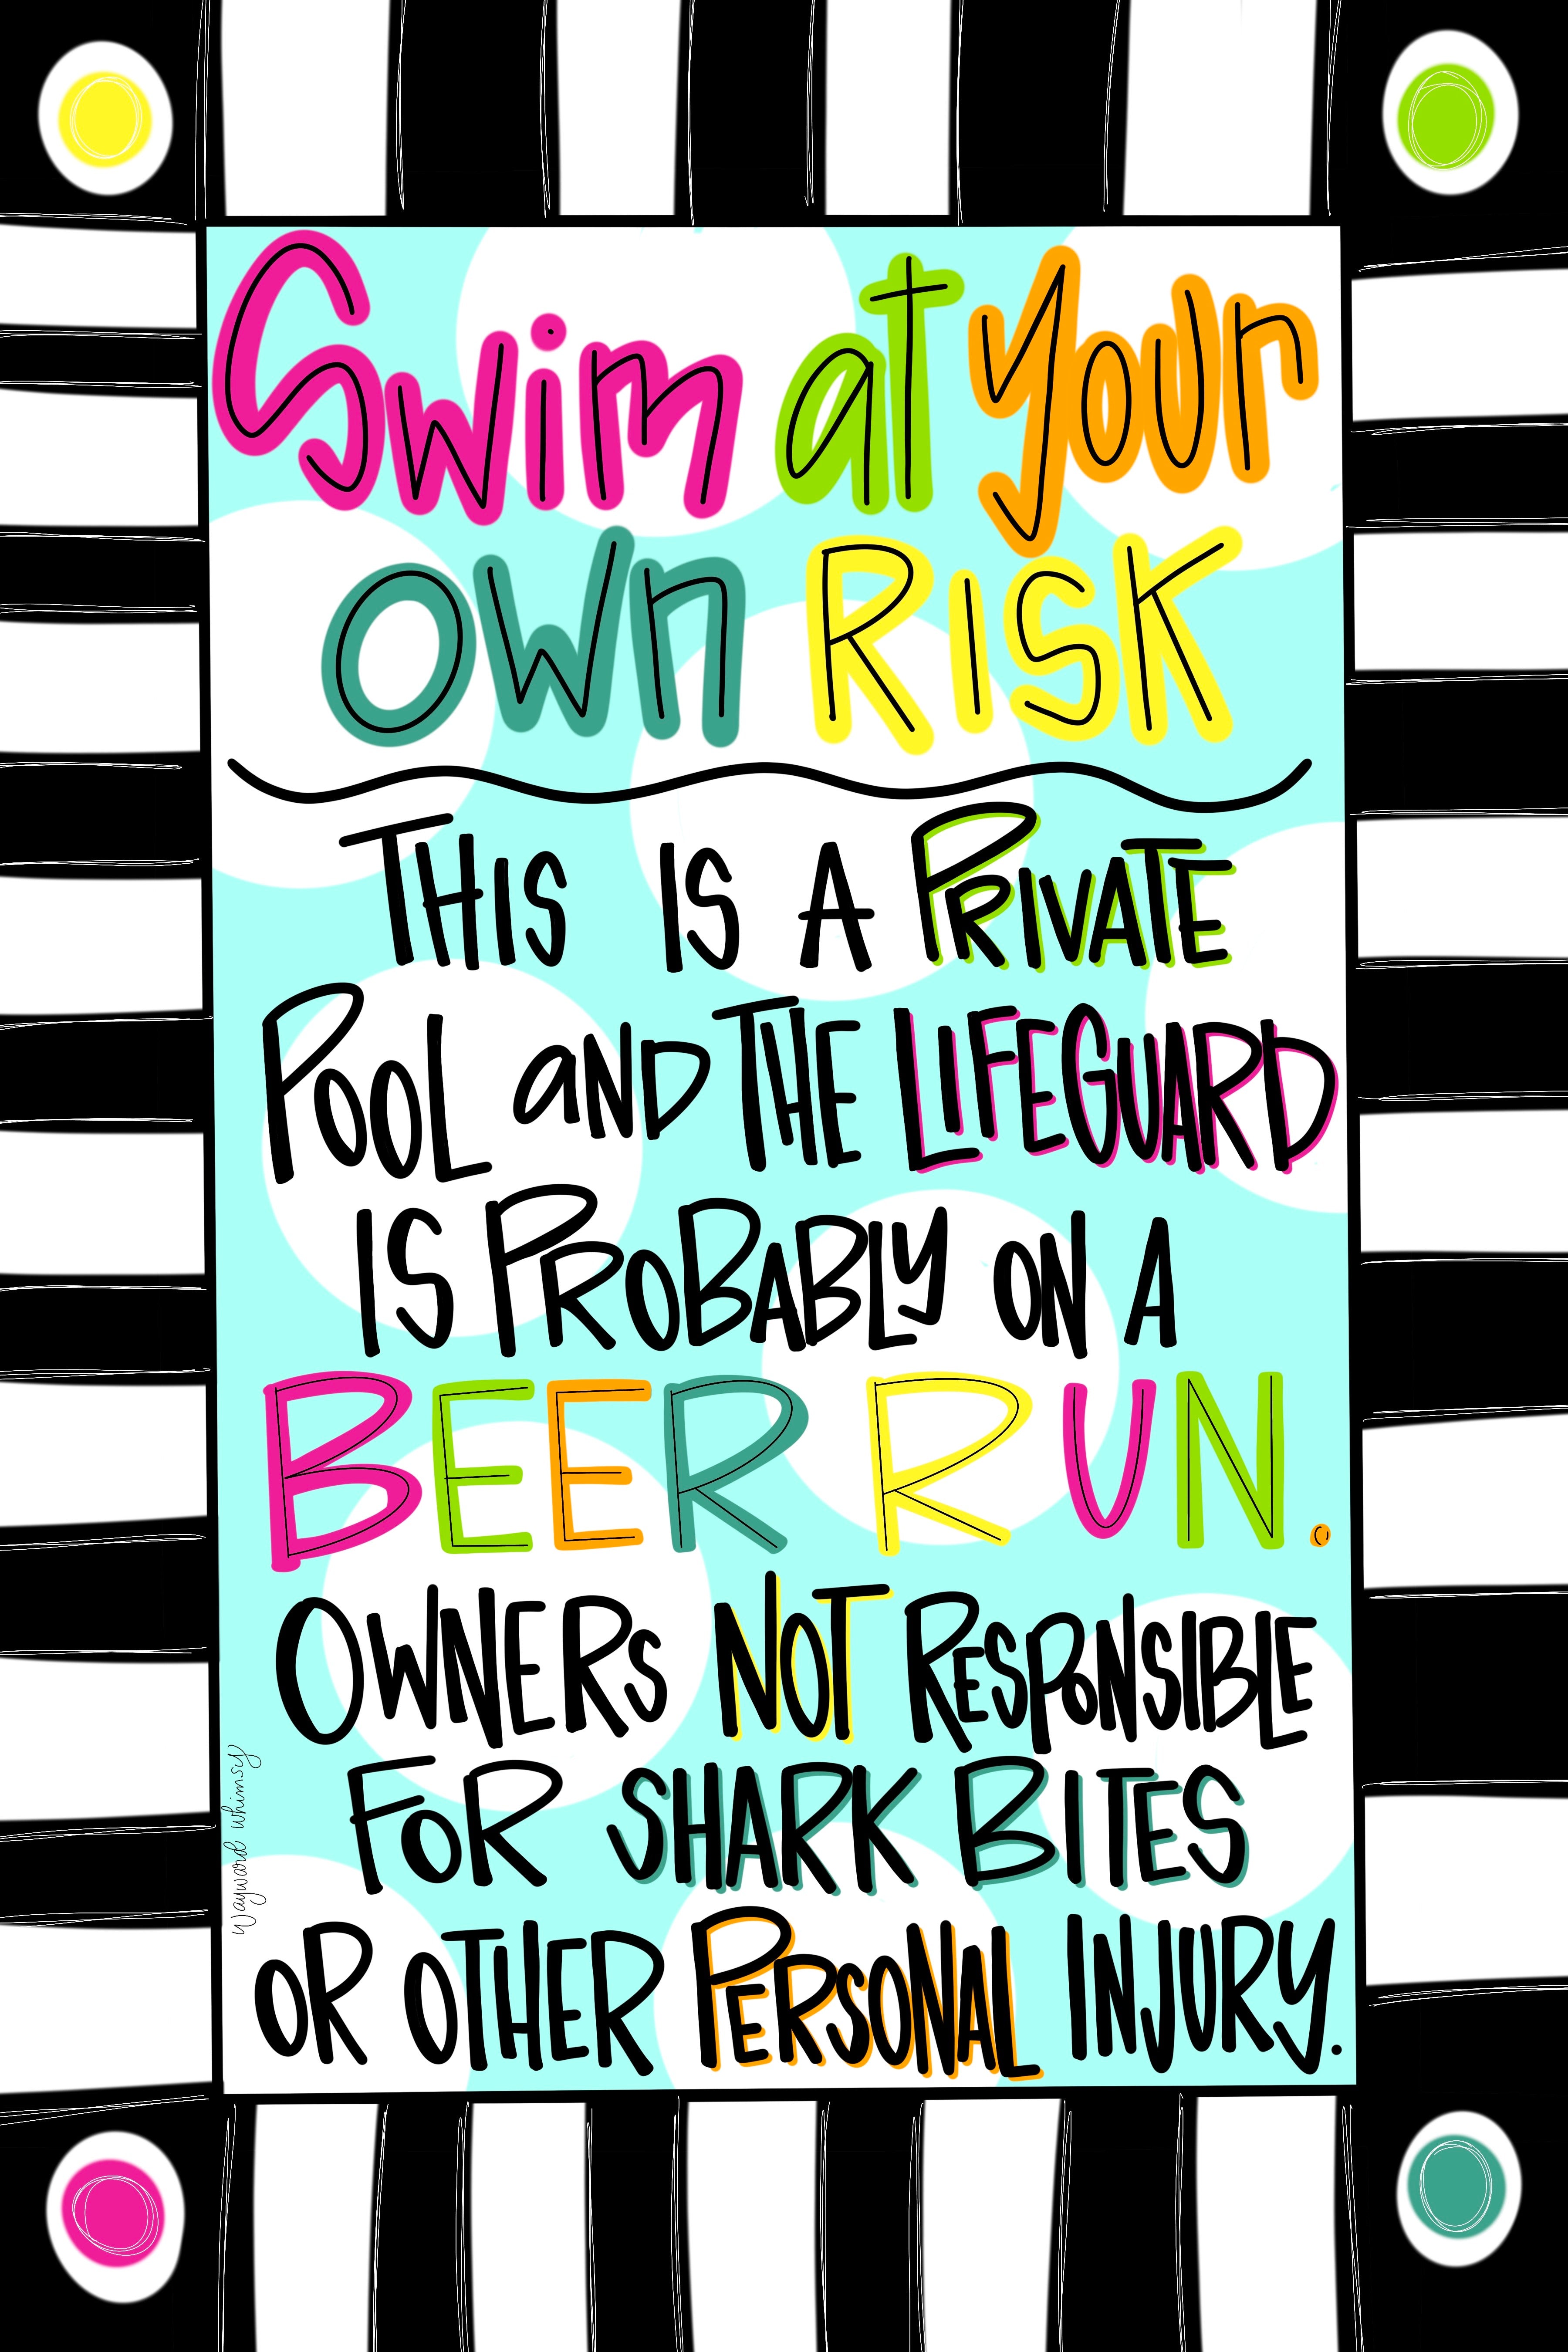 Swim at your
OWn RISK
THIS IS A PRIVATE
POOL aND THE LIFEGUARD
IS PROBABLY ON A
BEER RUN.
OWNERS NOT RESPONSIBLE
FOR SHARK BITES
OR OTHER PERSONAL INJURY.
Wayward whimsy